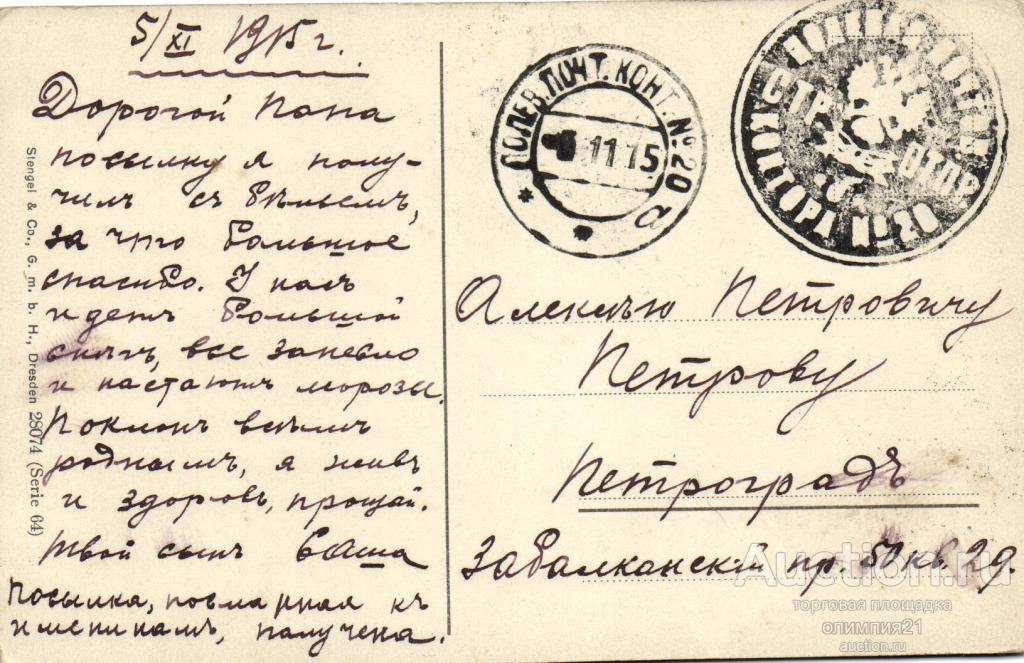 5/XI 1915 г.
Дорогой Папа
посылку я полу-
чилъ съ бѣльемъ,
за что большое
спасибо. У насъ
идетъ большой
снѣгъ, все занесло
и настаютъ морозы.
Поклонъ всѣмъ
роднымъ, я живъ
и здоровъ, прощай.
Твой сынъ Саша
Посылка, посланная къ
именинамъ, получена.
Stengel & Co., G. m. b. H., Dresden 28074 (Serie 64)
ПОЛЕВ. ПОЧТ. КОНТ. № 20
11 15
а
Алексѣю Петровичу
Петрову
Петроградъ
Забалканскій пр. кв. 29.
Auction.ru
торговая площадка
олимпия21
auction.ru